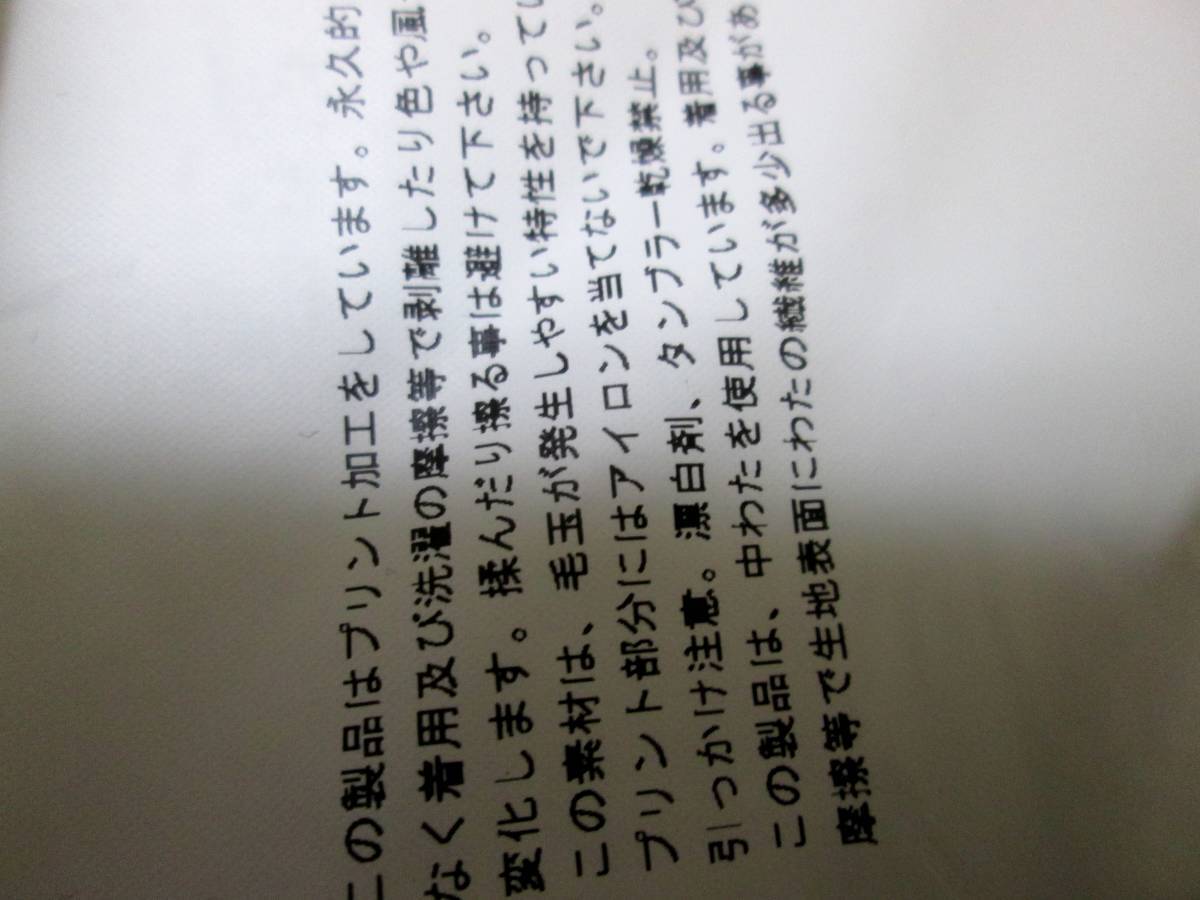 この製品はプリント加工をしています。永久的
なく着用及び洗濯の摩擦等で剥離したり色や風
変化します。揉んだり擦る事は避けて下さい。
この素材は、毛玉が発生しやすい特性を持ってい
プリント部分にはアイロンを当てないで下さい。
引っかけ注意。漂白剤、タンブラー乾燥禁止。
この製品は、中わたを使用しています。着用及び
摩擦等で生地表面にわたの繊維が多少出る事があ